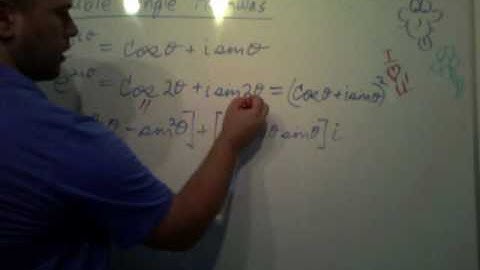 Angle Formulas
= Cosθ + i sinθ
= Cos 2θ + i sin 2θ = (Cosθ + i sinθ)²
θ - sin²θ] + [ θ sinθ] i
I
U!